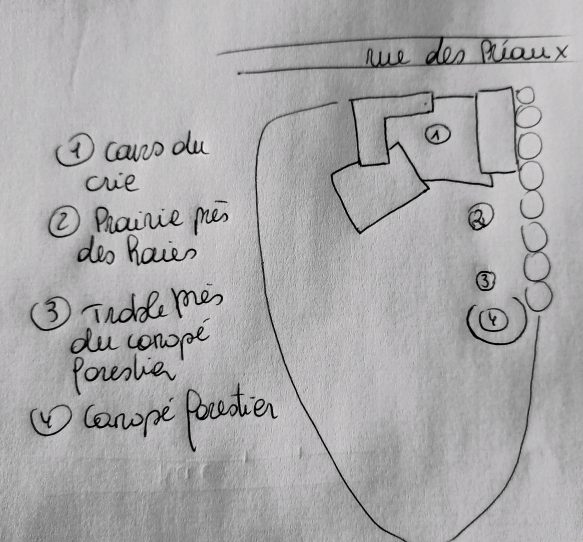 rue des Priaux
① cours du
crie
② Prairie près
des haies
③ Table près
du canopé
forestier
④ Canopé forestier
1
2
3
4